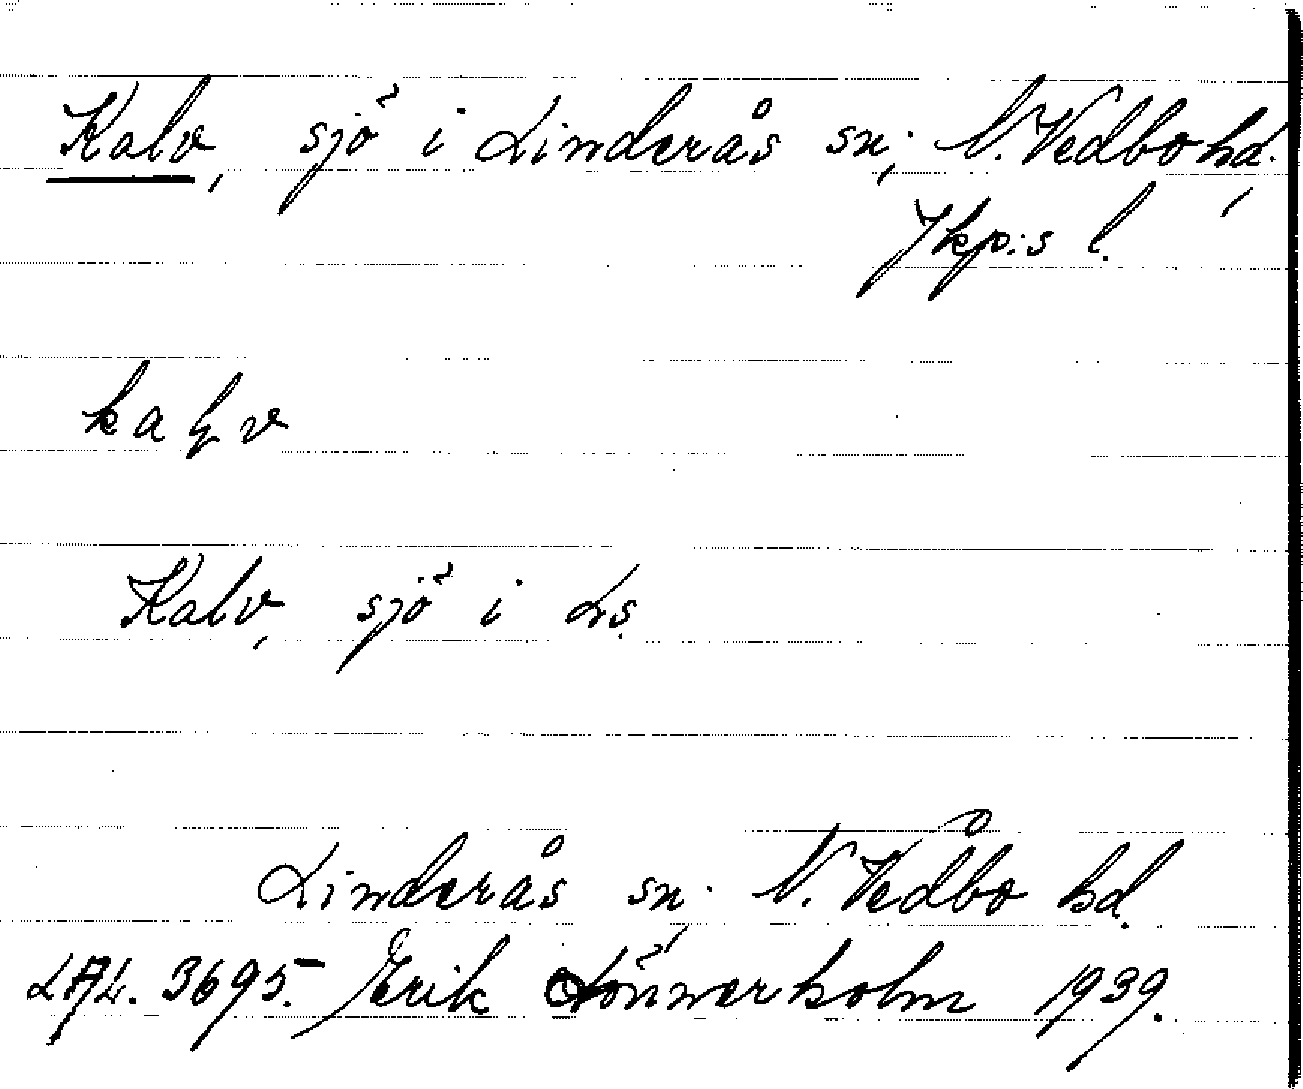 Kalv, sjö i Linderås sn, N. Vedbo hd.,
Jkp:s l.
k a ɫ v
Kalv, sjö i Ls.
Linderås sn. N. Vedbo hd.
LAL. 3695. Erik Lönnerholm 1939.